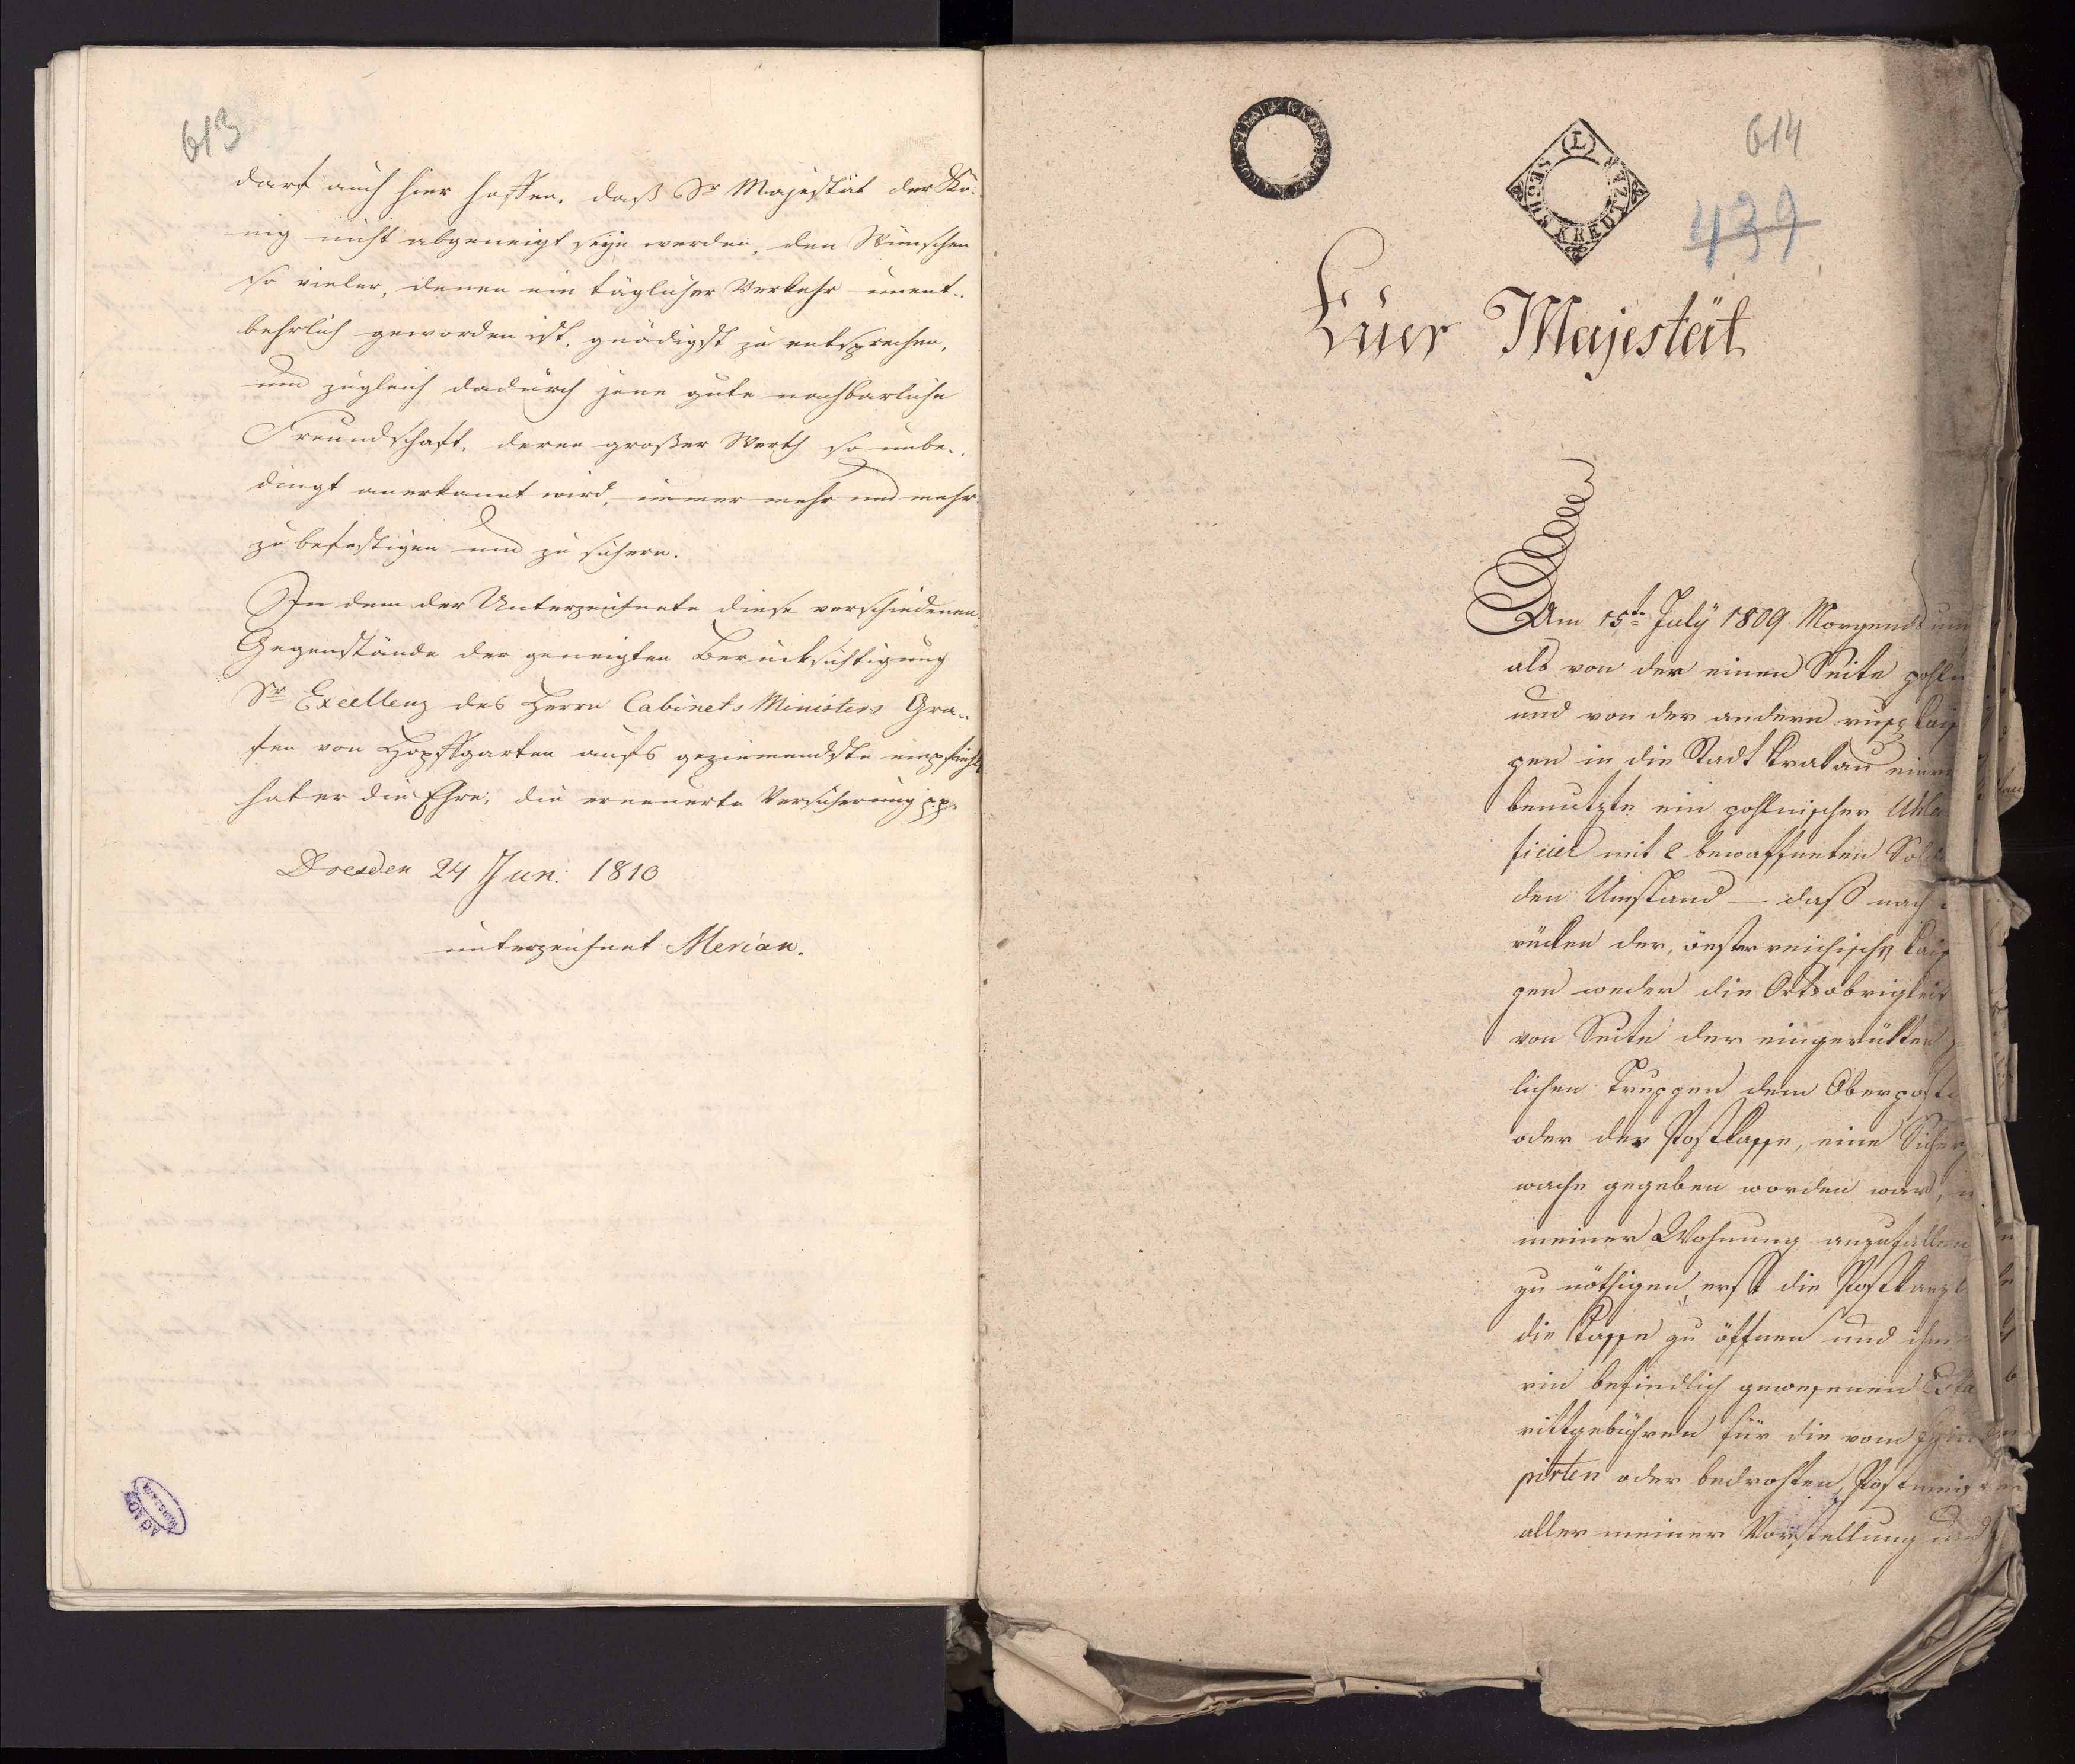 613
darf auch hier hoffen, daß Sr Majestät der Kö-
nig nicht abgeneigt seyn werden, den Wünschen
so vieler, denen ein täglicher Verkehr unent-
behrlich geworden ist, gnädigst zu entsprechen,
und zugleich dadurch jene gute nachbarliche
Freundschaft, deren großer Werth so unbe-
dingt anerkannt wird, immer mehr und mehr
zu befestigen und zu sichern.
In dem der Unterzeichnete diese verschiedenen
Gegenstände der geneigten Berücksichtigung
Sr Excellenz des Herrn Cabinets Ministers Gra-
fen von Hopffgarten aufs geziemendste empfiehlt
hat er die Ehre, die erneuerte Versicherung pp.
Dresden 24 Jun: 1810
unterzeichnet Merian.
AGAD
WARSZAWA
614
439
(L)
SECHS KREUTZER
Euer Majestät
Am 15te July 1809 Morgends um
als von der einen Seite pohln
und von der andern russ kais
pen in die Stadt Krakau einr
benutzte ein pohlnischer Uhla
ficier mit 2 bewaffneten Sol
den Umstand — daß nach
rücken der österreichisch kais
pen weder die Ortsobrigkeit
von Seite der eingerükten
lichen Truppen dem Oberposta
oder der Postkasse, eine Sicher
wache gegeben worden war,
meiner Wohnung anzufallen
zu nöthigen, erst die Postkanzl
die Kasse zu öffnen und ihm
rin befindlich gewesenen Esta
rittgebühren für die vom
pirten oder bedrohten Postmeist
aller meiner Vorstellung und